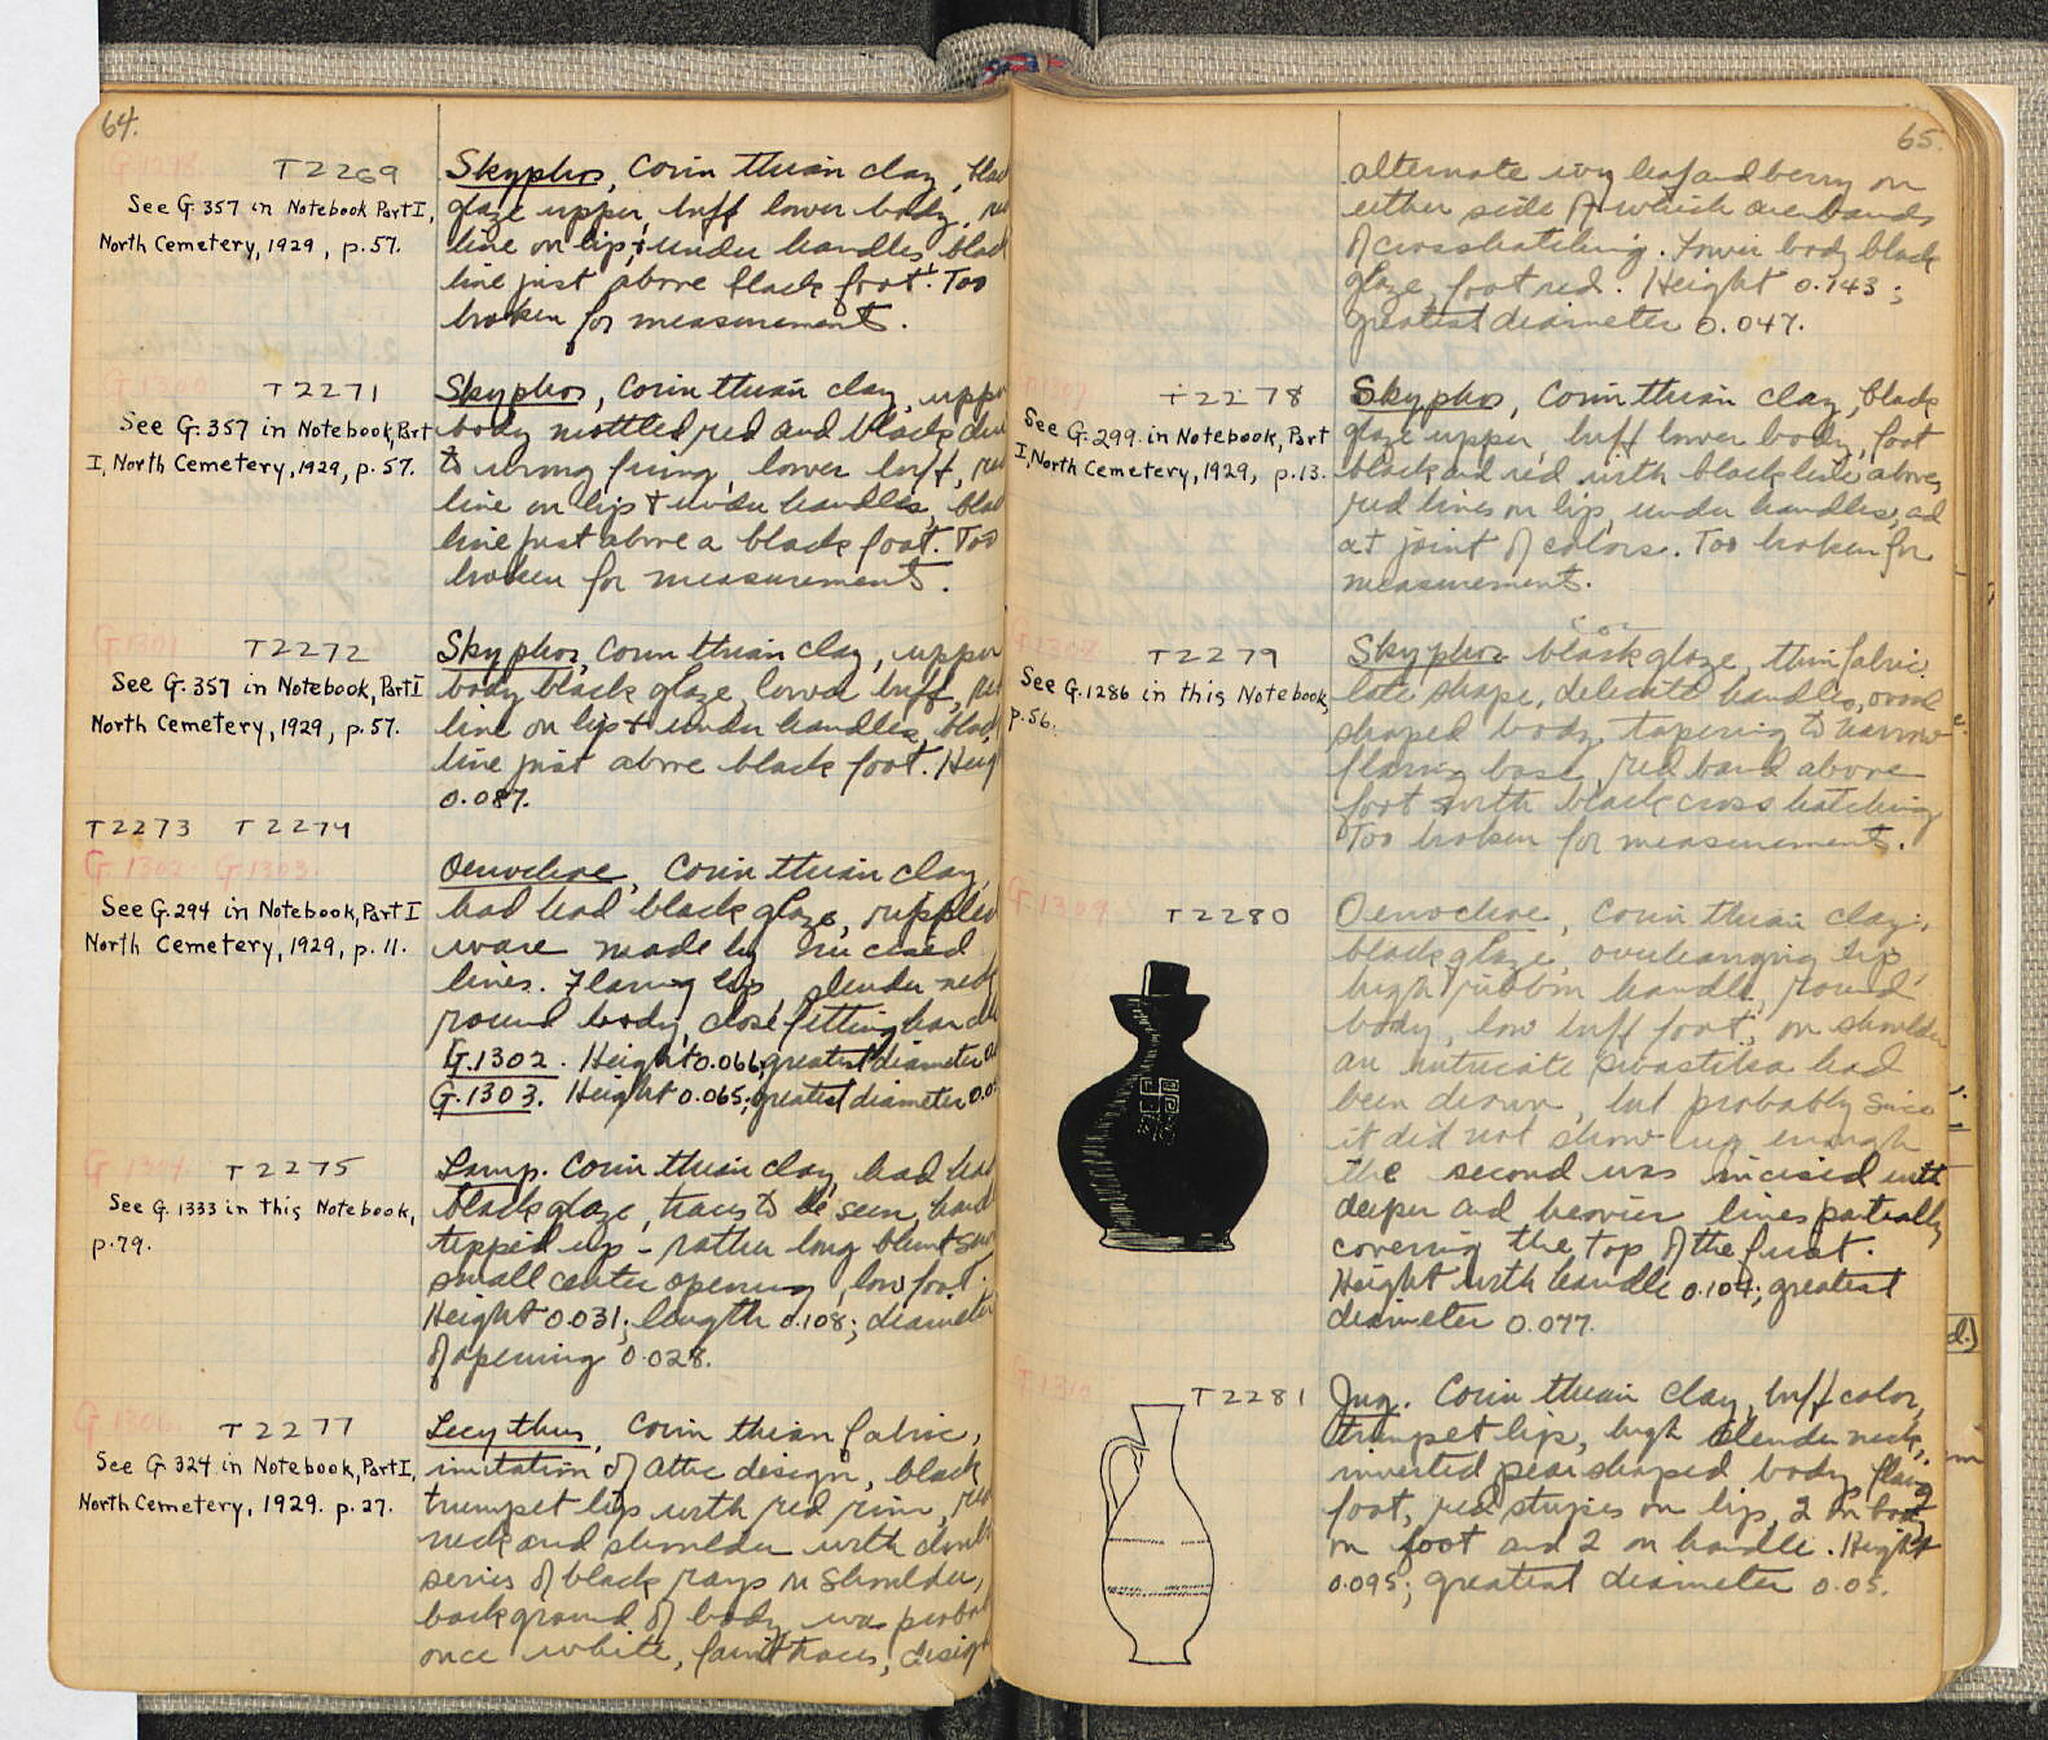 64.
G 1298.
T2269
See G. 357 in Notebook Part I,
North Cemetery, 1929, p. 57.
Skyphos, Corinthian clay, blac
glaze upper, buff lower body, re
line on lip + under handles, blac
line just above black foot. Too
broken for measurement.
G 1300
T2271
See G. 357 in Notebook, Part
I, North Cemetery, 1929, p. 57.
Skyphos, Corinthian clay, uppe
body mottled red and black due
to wrong firing, lower buff, re
line on lip + under handles, blac
line just above a black foot. Too
broken for measurement.
G 1301
T2272
See G. 357 in Notebook, Part I
North Cemetery, 1929, p. 57.
Skyphos, Corinthian clay, upper
body black glaze, lower buff, re
line on lip + under handles, blac
line just above black foot. Heig
0.087.
T2273 T2274
G 1302. G 1303.
See G. 294 in Notebook, Part I
North Cemetery, 1929, p. 11.
Oenochoe, Corinthian clay,
had had black glaze, rippled
ware made by incised
lines. Flaring lip, slender neck
round body, close fitting handle
G.1302. Height 0.066; greatest diameter 0.
G.1303. Height 0.065; greatest diameter 0.0
G 1304.
T2275
See G. 1333 in this Notebook,
p. 79.
Lamp. Corinthian clay, had had
black glaze, traces to be seen, hand
tipped up - rather long blunt
small center opening, low foot.
Height 0.031; length 0.108; diameter
of opening 0.028.
G 1306.
T2277
See G. 324 in Notebook, Part I,
North Cemetery, 1929. p. 27.
Lecythus, Corinthian fabric,
imitation of Attic design, black
trumpet lip with red rim, re
neck and shoulder with double
series of black rays on shoulder,
background of body was probab
once white, faint traces, design
65.
alternate ivy leaf and berry on
either side of which are bands
of crosshatching. Lower body black
glaze, foot red. Height 0.143;
greatest diameter 0.047.
G 1307
T2278
See G. 299 in Notebook, Part
I, North Cemetery, 1929, p. 13.
Skyphos, Corinthian clay, black
glaze upper, buff lower body, foot
black and red with black line above,
red lines on lip, under handles, ad
at joint of colors. Too broken for
measurement.
G 1308
T2279
See G. 1286 in this Notebook,
p. 56.
Cor
Skyphos black glaze, thin fabric.
late shape, delicate handles, ovoid
shaped body, tapering to narrow
flaring base, red band above
foot with black cross hatching
Too broken for measurement.
G 1309
T2280
Oenochoe, Corinthian clay,
black glaze, overhanging lip,
high ribbon handle, round
body, low buff foot, on shoulder
an intricate swastika had
been drawn, but probably since
it did not show up enough
the second was incised with
deeper and heavier lines partially
covering the top of the first.
Height with handle 0.104; greatest
diameter 0.077.
G 1310
T2281
Jug. Corinthian clay, buff color,
trumpet lip, high slender neck,
inverted pear shaped body, flaring
foot, red stripes on lip, 2 on body
on foot and 2 on handle. Height
0.095; greatest diameter 0.05.